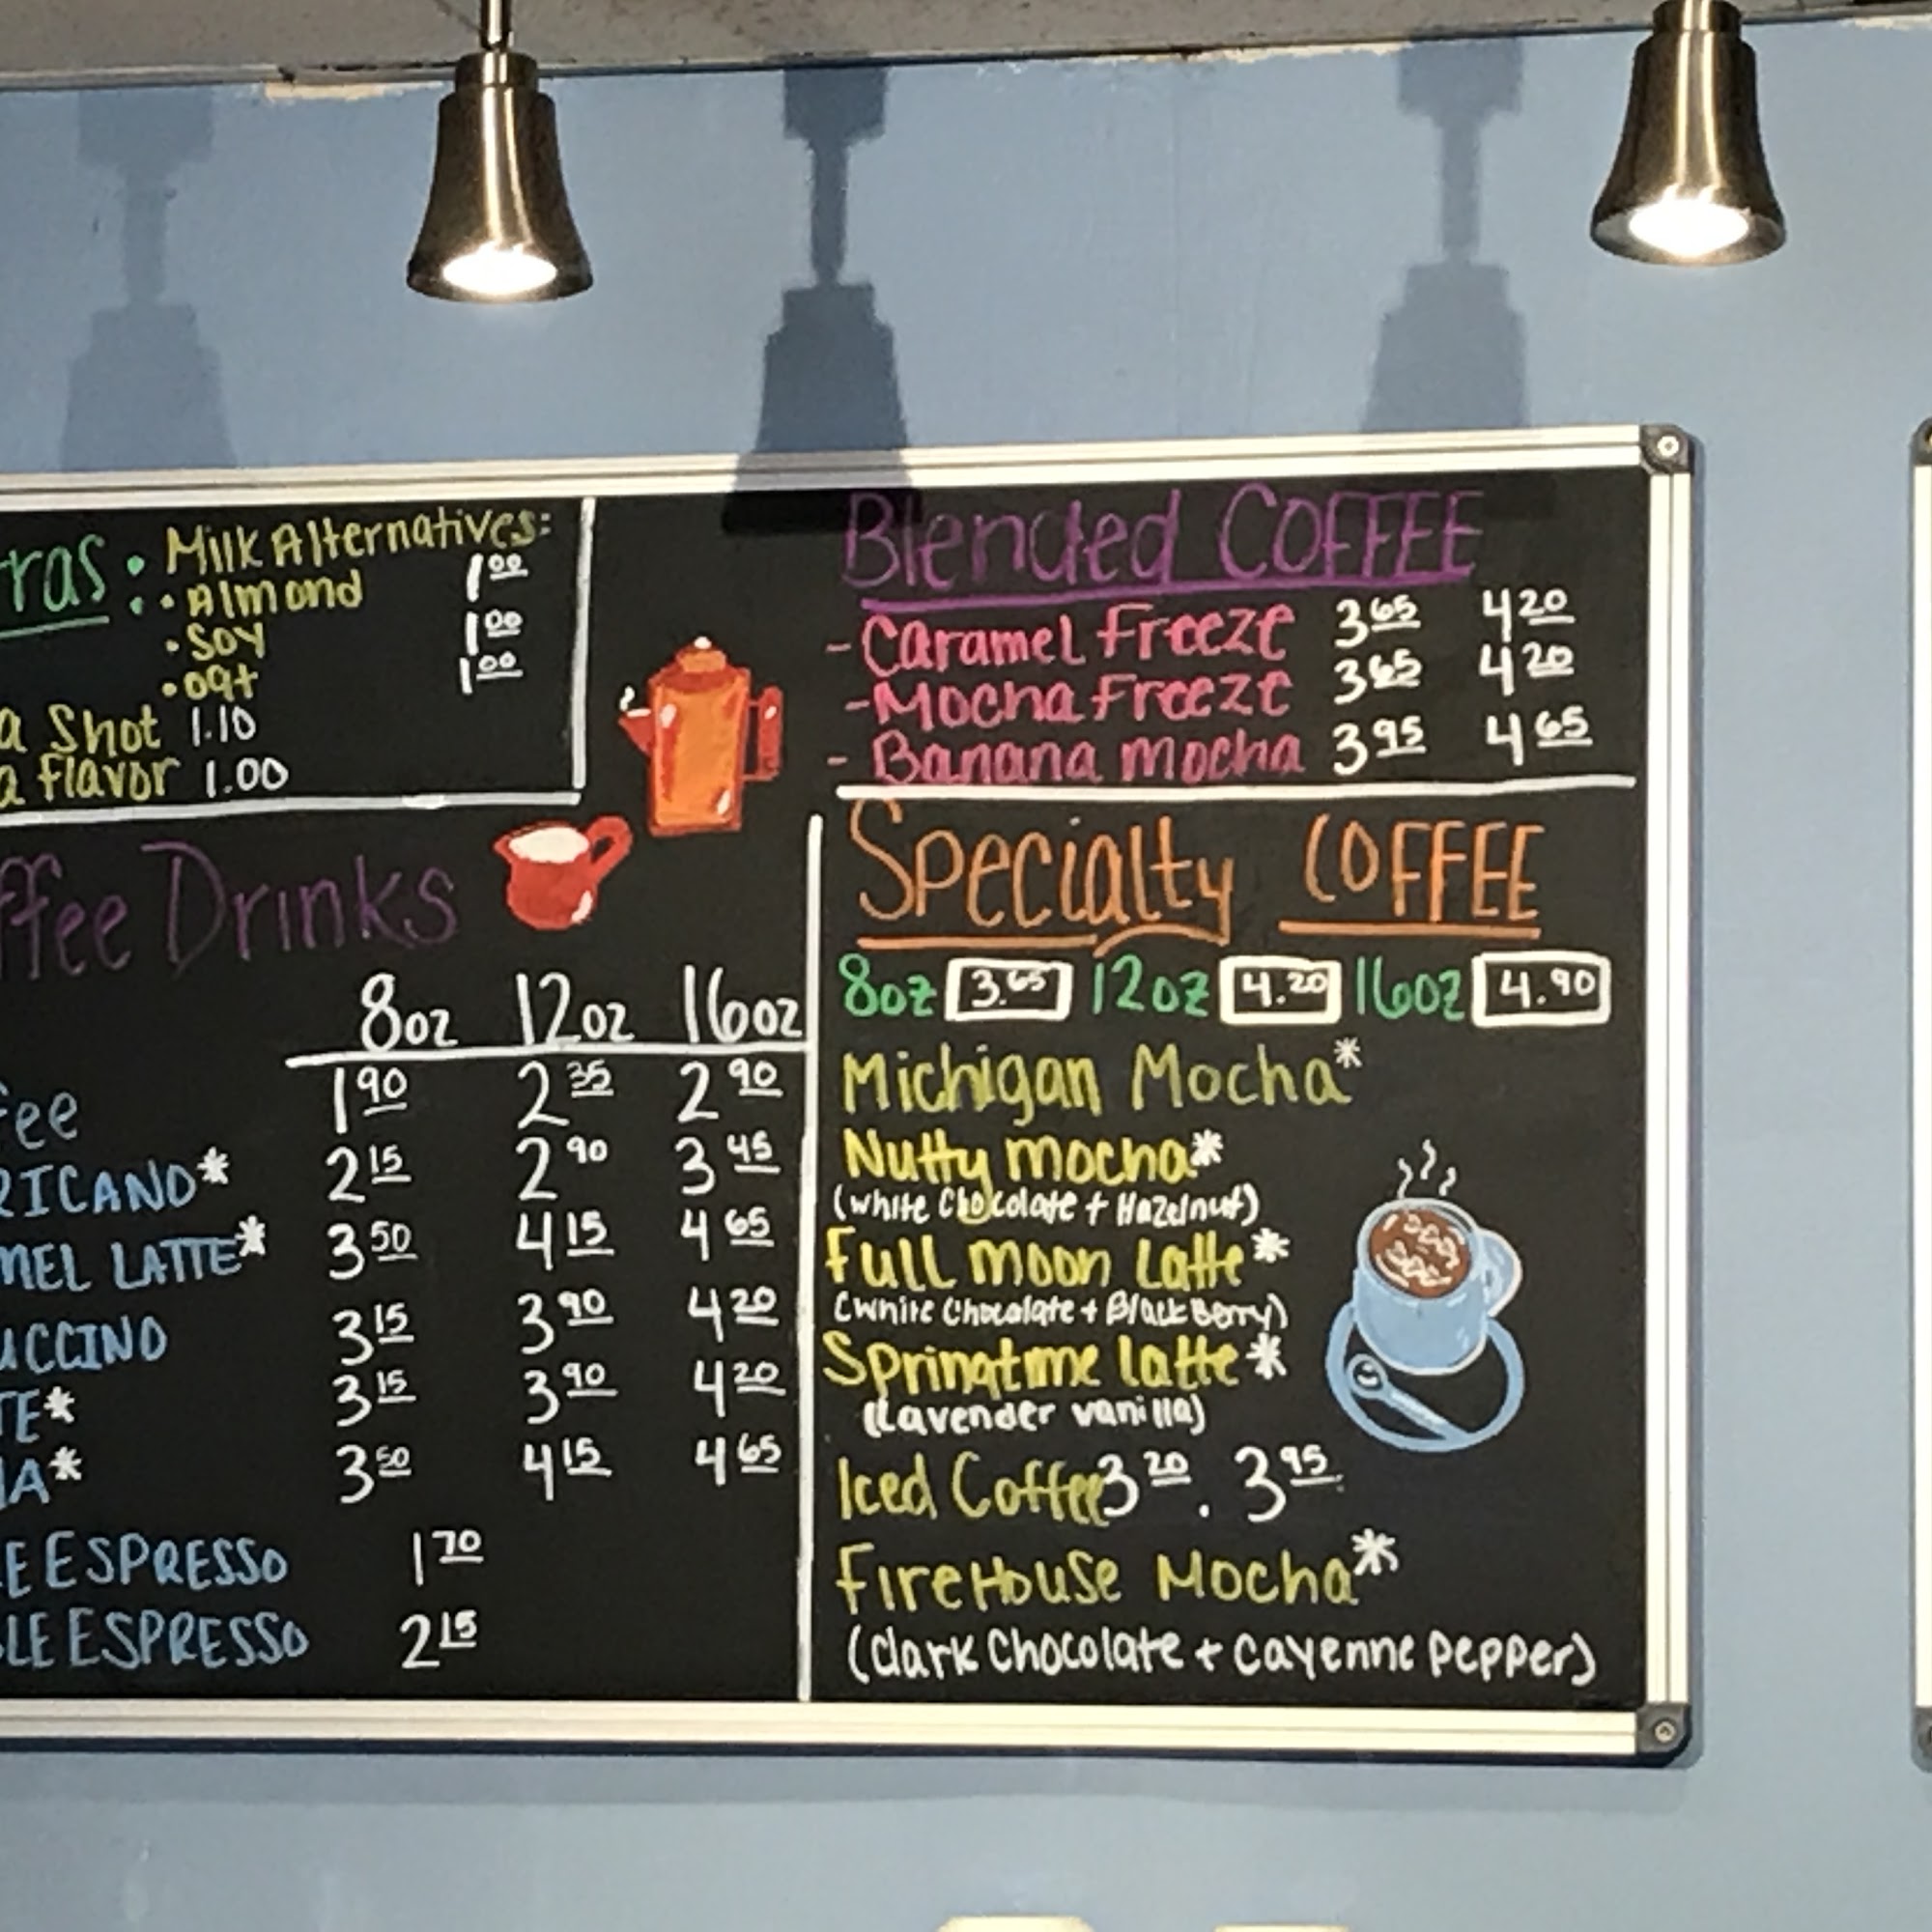 ras: Milk Alternatives:
• Almond 1.00
• Soy 1.00
• oat 1.00
a Shot 1.10
a flavor 1.00
ffee Drinks
8oz 12oz 16oz
fee 1.90 2.35 2.90
RICANO* 2.15 2.90 3.45
MEL LATTE* 3.50 4.15 4.65
UCCINO 3.15 3.90 4.20
TE* 3.15 3.90 4.20
HA* 3.50 4.15 4.65
E ESPRESSO 1.70
LE ESPRESSO 2.15
Blended COFFEE
- Caramel Freeze 3.65 4.20
- Mocha Freeze 3.65 4.20
- Banana mocha 3.95 4.65
Specialty COFFEE
8oz 3.65 12oz 4.20 16oz 4.90
Michigan Mocha*
Nutty mocha*
(white Chocolate + Hazelnut)
Full moon Latte*
(white Chocolate + BlackBerry)
Springtime latte*
(Lavender vanilla)
Iced Coffee 3.20 . 3.95
FireHouse Mocha*
(dark Chocolate + Cayenne Pepper)